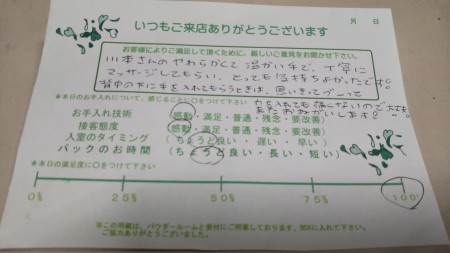 いつもご来店ありがとうございます
月 日
お客様によりご満足して頂くために、厳しいご意見をお聞かせ下さい。
川本さんのやわらかくて温かい手で、丁寧に
マッサージしてもらい、とっても気持ちよかったです!
背中の下に手を入れてもらうときは、思いきってグーって
力を入れても痛くないので大丈夫
またおねがいします!
★本日のお手入れについて、感じるごとに○をつけて下さい
お手入れ技術 (感動・満足・普通・残念・要改善)
接客態度 (感動・満足・普通・残念・要改善)
入室のタイミング (ちょうど良い・遅い・早い)
パックのお時間 (ちょうど良い・長い・短い)
★本日の満足度に○をつけて下さい
0% 25% 50% 75% 100%
※この用紙は、パウダールームと受付にご用意しております。BOXに入れて下さい。
ご協力ありがとうございました。